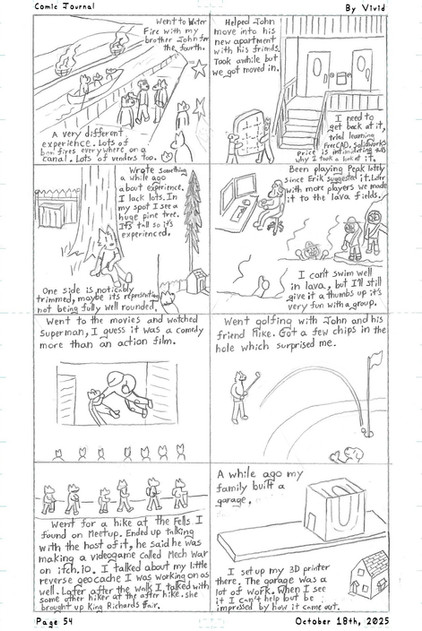 Comic Journal
By Vivid
Went to Water
Fire with my
brother John for
the fourth.
A very different
experience. Lots of
bon fires everywhere on a
canal. Lots of venders too.
Helped John
move into his
new apartment
with his friends.
Took awhile but
we got moved in.
I need to
get back at it,
tried learning
FreeCAD, Solidworks
Price is intimidating
why I took a look at it.
Wrote something
a while ago
about experience.
I lack lots. In
my spot I see a
huge pine tree.
It's tall so it's
experienced.
One side is noticably
trimmed, maybe its representing
not being fully well rounded.
Been playing Peak lately
since Erik suggested it. Later
with more players we made
it to the lava fields.
I can't swim well
in lava, but I'll still
give it a thumbs up it's
very fun with a group.
Went to the movies and watched
Superman, I guess it was a comedy
more than an action film.
Went golfing with John and his
friend Mike. Got a few chips in the
hole which surprised me.
Went for a hike at the Fells I
found on Meetup. Ended up talking
with the host of it, he said he was
making a videogame called Mech War
on itch.io. I talked about my little
reverse geocache I was working on as
well. Later after the walk I talked with
some other hiker at the hike. she
brought up King Richards Fair.
A while ago my
family built a
garage.
I set up my 3D printer
there. The garage was a
lot of work. When I see
it I can't help but be
impressed by how it came out.
Page 54
October 18th, 2025